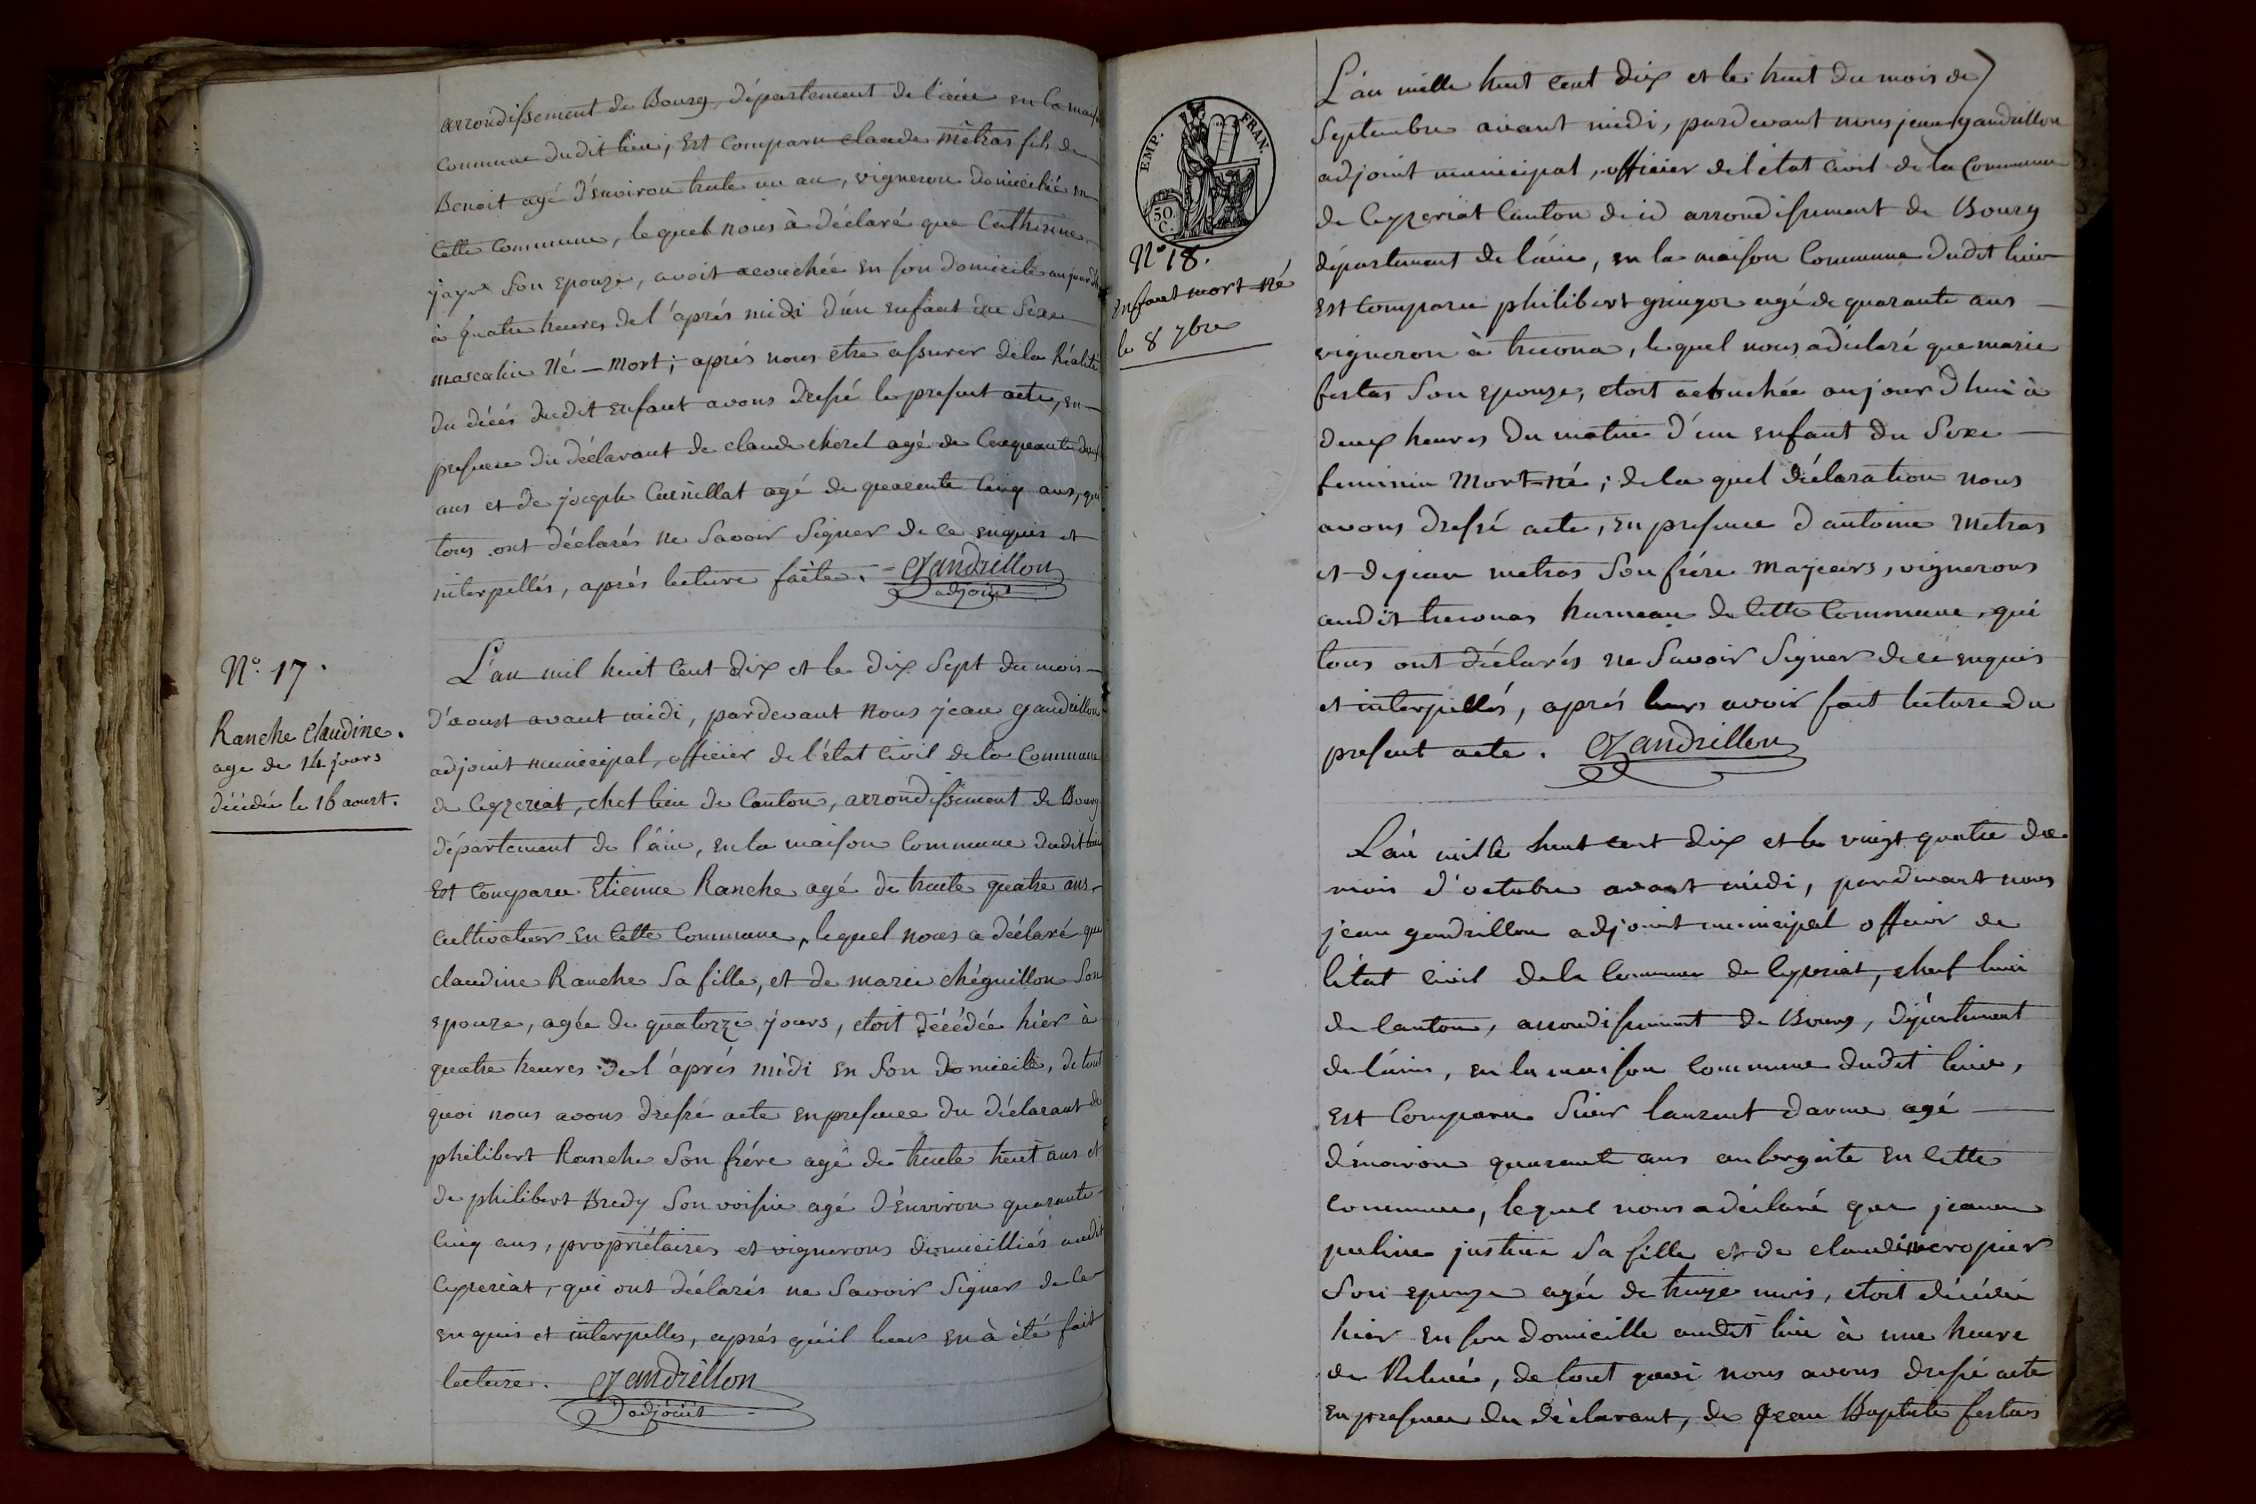 arrondissement de Bourg, département de l'ain en la maison
Commune dudit lieu, Est Comparu claude mêtras fils de
Benoit agé d'environ trente un an, vigneron domicilié en
Cette Commune, lequel nous à déclaré que Catherine
jayr Son Epouze, avoit acouchée En son domicile aujourd
à quatre heures de l'aprés midi d'un enfant du Sexe
masculin Né – Mort; aprés nous etre assurer de la Réalité
du décés dudit Enfant avons dressé le present acte, en
presence du déclarant de claude cherel agé de Cinquante deux
ans et de joseph Curnillat agé de quarente Cinq ans, qui
tous ont déclarés ne Savoir Signer de ce enquis et
interpellés, aprés lecture faite. – Gandrillon
adjoint
N.° 17.
Ranche Claudine.
age de 14 jours
décédée le 16 aoust.
L'an mil huit Cent dix et le dix Sept du mois
d'aoust avant midi, pardevant Nous jean gandrillon
adjoint municipal, officier de l'état Civil de la Commune
de Ceyzeriat, chef lieu de Canton, arrondissement de Bourg
département de l'ain, en la maison Commune dudit lieu
Est Comparu Etienne Ranche agé de trente quatre ans
Cultivateur en Cette Commune, lequel nous a déclaré que
claudine Ranche Sa fille, et de marie chéguillon Son
epouze, agée de quatorze jours, etoit décédée hier à
quatre heures de l'aprés midi en Son domicile, de tout
quoi nous avons dressé acte en presence du déclarant de
philibert Ranche Son frére agé de trente huit ans et
de philibert Bredy Son voisin agé d'environ quarante
Cinq ans, propriétaires et vignerons domicilliés audit
Ceyzeriat, qui ont déclarés ne Savoir Signer de Ce
enquis et interpelles, aprés qu'il leur en à été fait
lecture. Gandrillon
adjoint
EMP. FRAN.
50. C.
N.° 18.
Enfant mort né
le 8 7bre
L'an mille huit Cent dix et le huit du mois de
Septembre avant midi, pardevant nous jean gandrillon
adjoint municipal, officier de l'état Civil de la Commune
de Ceyzeriat Canton de id arrondissement de Bourg
département de l'ain, en la maison Commune dudit lieu
Est Comparu philibert gringoz agé de quarante ans
vigneron à trecona, lequel nous a déclaré que marie
festas Son epouze, etoit acouchée aujourd'hui à
deux heures du matin d'un enfant du Sexe
feminin Mort-né; de la quel déclaration nous
avons dressé acte, en presence d'antoine Metras
et de jean metras Son frére Majeurs, vignerons
audit treconas hameau de Cette Commune, qui
tous ont déclarés ne Savoir Signer de ce enquis
et interpellés, aprés leurs avoir fait lecture du
present acte. Gandrillon
L'an mille huit cent dix et le vingt quatre du
mois d'octobre avant midi, pardevant nous
jean gandrillon adjoint municipal officier de
l'état Civil de la Commune de Ceyzeriat, chef lieu
de Canton, arrondissement de Bourg, département
de l'ain, en la maison Commune dudit lieu,
est Comparu Sieur laurent darme agé
d'environ quarante ans aubergiste en cette
commune, lequel nous a déclaré que jeanne
justine Sa fille et de claudine cropier
Son epouze agée de treize mois, etoit décédée
hier en son domicille audit lieu à une heure
de Relevée, de tout quoi nous avons dressé acte
en presence du déclarant, de jean Baptiste festas